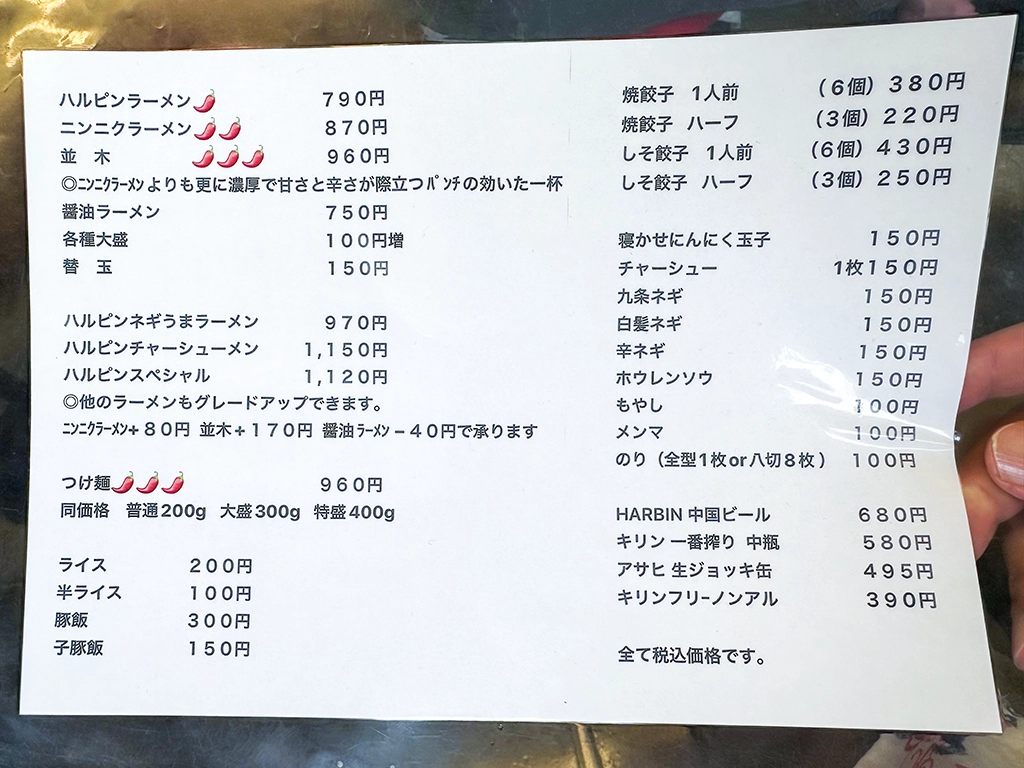 ハルピンラーメン🌶 790円
ニンニクラーメン🌶🌶 870円
並 木 🌶🌶🌶 960円
◎ﾆﾝﾆｸﾗｰﾒﾝよりも更に濃厚で甘さと辛さが際立つﾊﾟﾝﾁの効いた一杯
醤油ラーメン 750円
各種大盛 100円増
替 玉 150円
ハルピンネギうまラーメン 970円
ハルピンチャーシューメン 1,150円
ハルピンスペシャル 1,120円
◎他のラーメンもグレードアップできます。
ﾆﾝﾆｸﾗｰﾒﾝ+80円 並木+170円 醤油ﾗｰﾒﾝ−40円で承ります
つけ麺🌶🌶🌶 960円
同価格 普通200g 大盛300g 特盛400g
ライス 200円
半ライス 100円
豚飯 300円
子豚飯 150円
焼餃子 1人前 (6個) 380円
焼餃子 ハーフ (3個) 220円
しそ餃子 1人前 (6個) 430円
しそ餃子 ハーフ (3個) 250円
寝かせにんにく玉子 150円
チャーシュー 1枚150円
九条ネギ 150円
白髪ネギ 150円
辛ネギ 150円
ホウレンソウ 150円
もやし 100円
メンマ 100円
のり (全型1枚or八切8枚) 100円
HARBIN 中国ビール 680円
キリン 一番搾り 中瓶 580円
アサヒ 生ジョッキ缶 495円
キリンフリｰノンアル 390円
全て税込価格です。